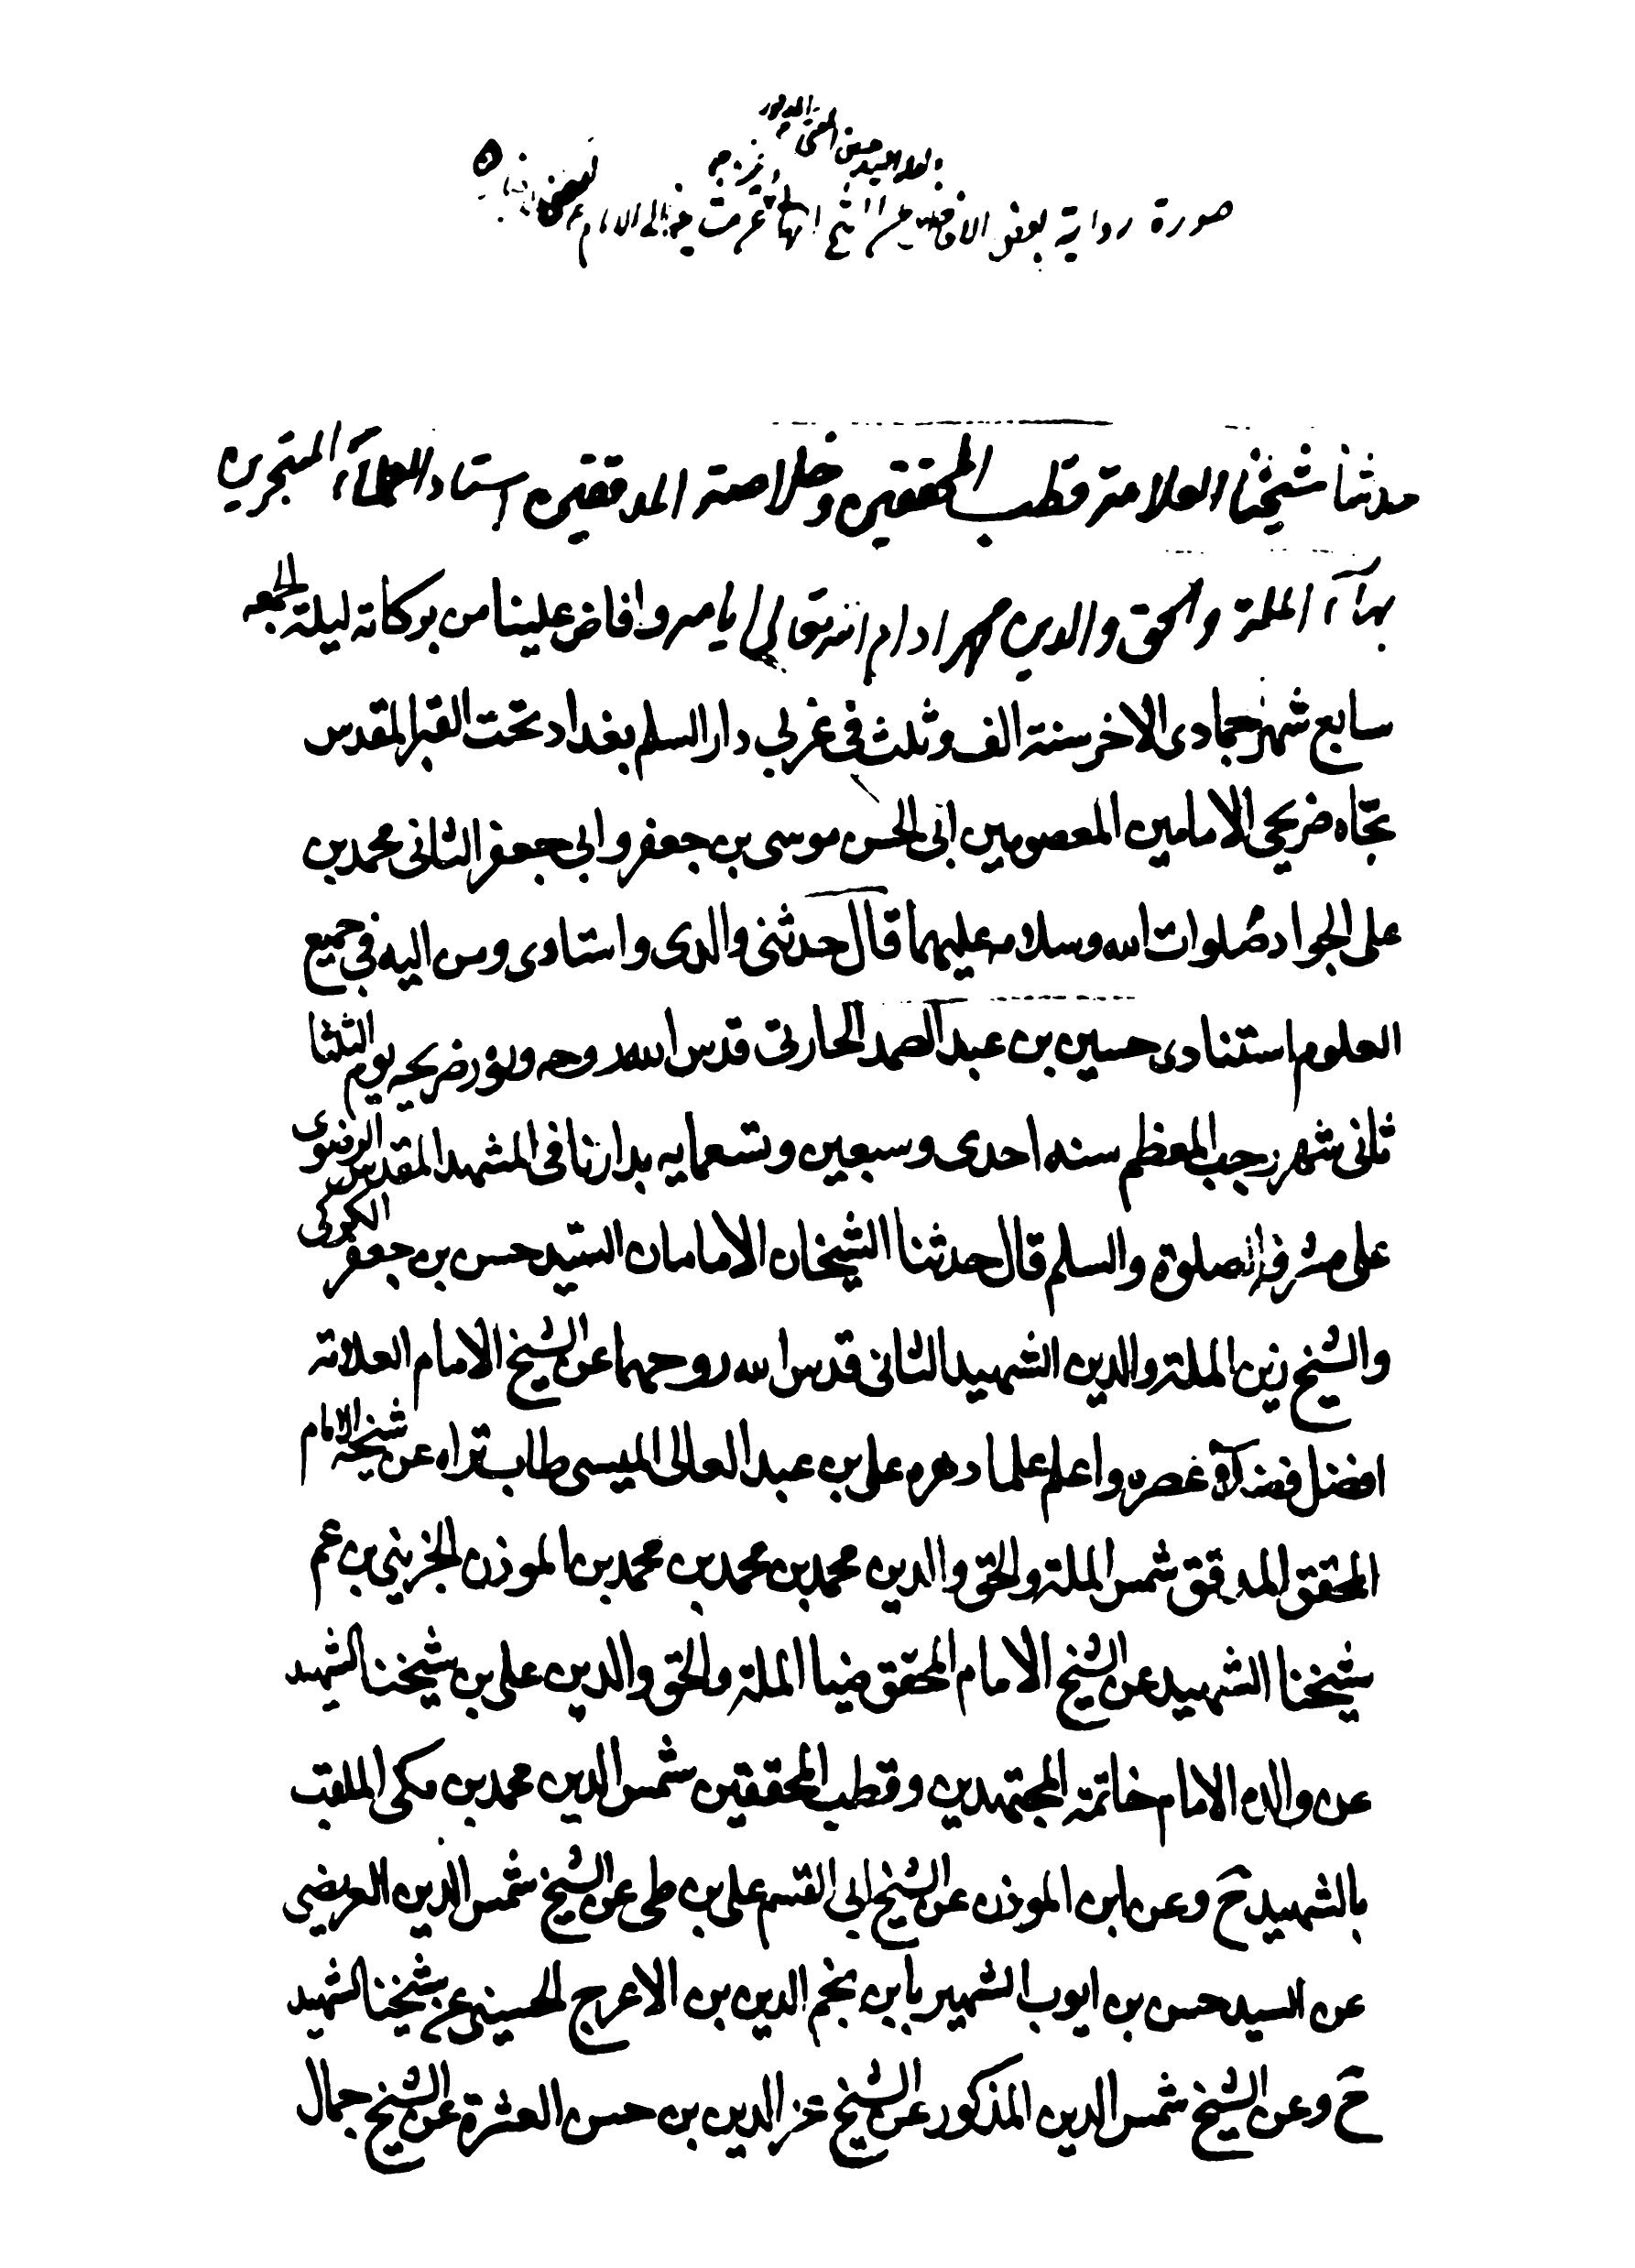 صورة رواية بعض الافاضل عن الشيخ البهائى
حدثنا شيخنا العلامة قطب المحققين وخلاصة المدققين استاد العلمآء المتبحرين
بهآء الملة والحق والدين محمد ادام الله تعالى ايامه وافاض علينا من بركاته ليلة الجمعه
سابع شهر جمادى الاخر سنة الف وثلث فى غربي دار السلم بغداد تحت القبه المقدسه
تجاه ضريحى الامامين المعصومين ابى الحسن موسى بن جعفر وابى جعفر الثانى محمد بن
على الجواد صلوات الله وسلامه عليهما قال حدثنى والدى واستادى ومن اليه فى جميع
العلوم استنادى حسين بن عبد الصمد الحارثى قدس الله روحه ونور ضريحه يوم الثلثا
ثانى شهر رجب المعظم سنه احدى وسبعين وتسعمايه بدارنا فى المشهد المقدس الرضوى
على مشرفه الصلوة والسلم قال حدثنا الشيخان الامامان السيد حسن بن جعفر الكركى
والشيخ زين الملة والدين الشهيد الثانى قدس الله روحهما عن الشيخ الامام العلامة
افضل فضلآء عصره واعلم علما دهره على بن عبد العالى الميسى طاب ثراه عن شيخه الامام
المحقق المدقق شمس الملة والحق والدين محمد بن محمد بن محمد بن الموذن الجزينى بن عم
شيخنا الشهيد عن الشيخ الامام المحقق ضيا الملة والحق والدين على بن شيخنا الشهيد
عن والده الامام خاتمة المجتهدين وقطب المحققين شمس الدين محمد بن مكى الملقب
بالشهيد ح وعن ابن الموذن عن الشيخ ابى القسم على بن طى عن الشيخ شمس الدين العريضى
عن السيد حسن بن ايوب الشهير بابن نجم الدين بن الاعرج الحسينى عن شيخنا الشهيد
ح وعن الشيخ شمس الدين المذكور عن الشيخ عز الدين بن حسن العشرة عن الشيخ جمال